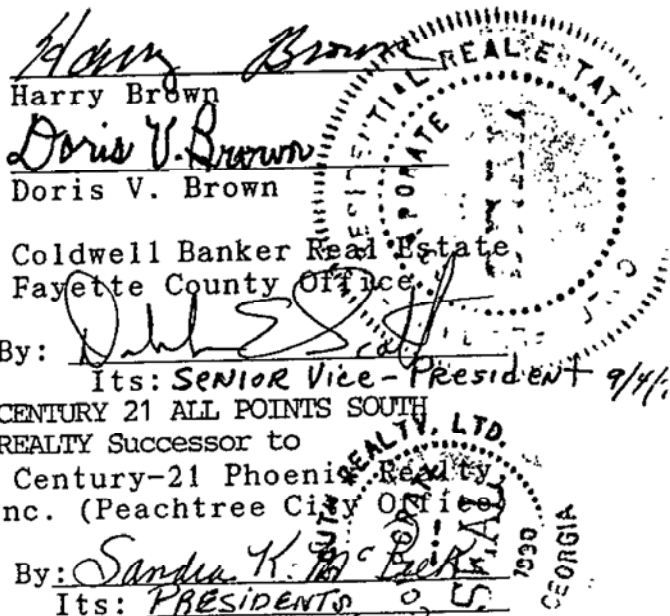 Harry Brown
Harry Brown
Doris V. Brown
Doris V. Brown
Coldwell Banker Real Estate
Fayette County Office
By:
Its: SENIOR Vice-PRESIDENT 9/4/
CENTURY 21 ALL POINTS SOUTH
REALTY Successor to
Century-21 Phoenix Realty,
nc. (Peachtree City Office
By: Sandra K.
Its: PRESIDENT
REAL ESTATE
SOUTH REALTY, LTD.
SEAL
GEORGIA